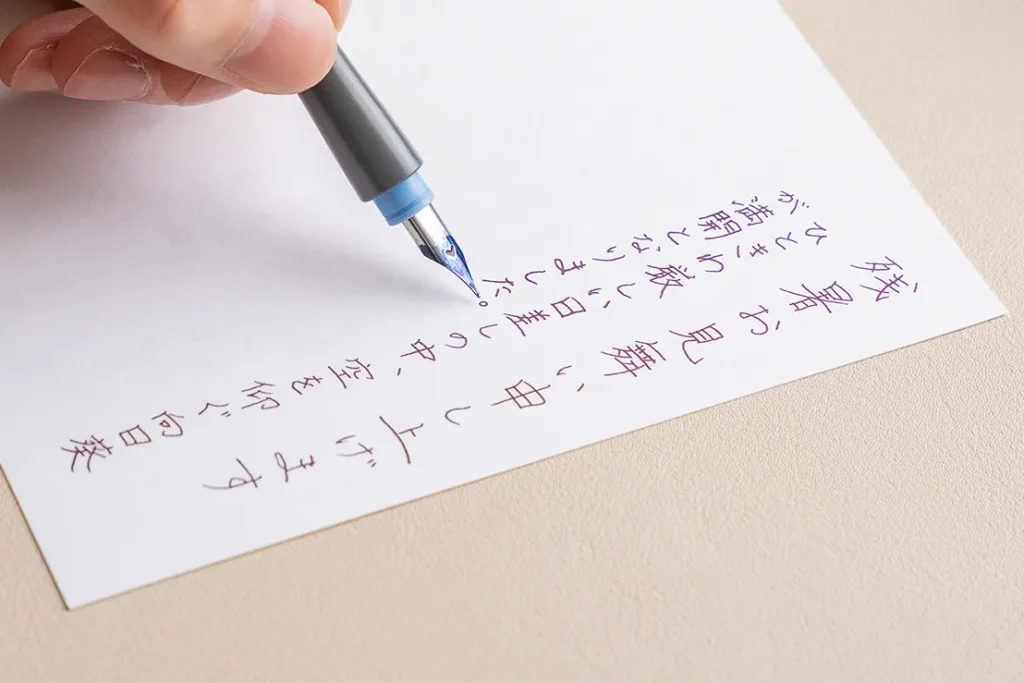 残暑お見舞い申し上げます
ひときわ厳しい日差しの中、空を仰ぐ向日葵
が満開となりました。